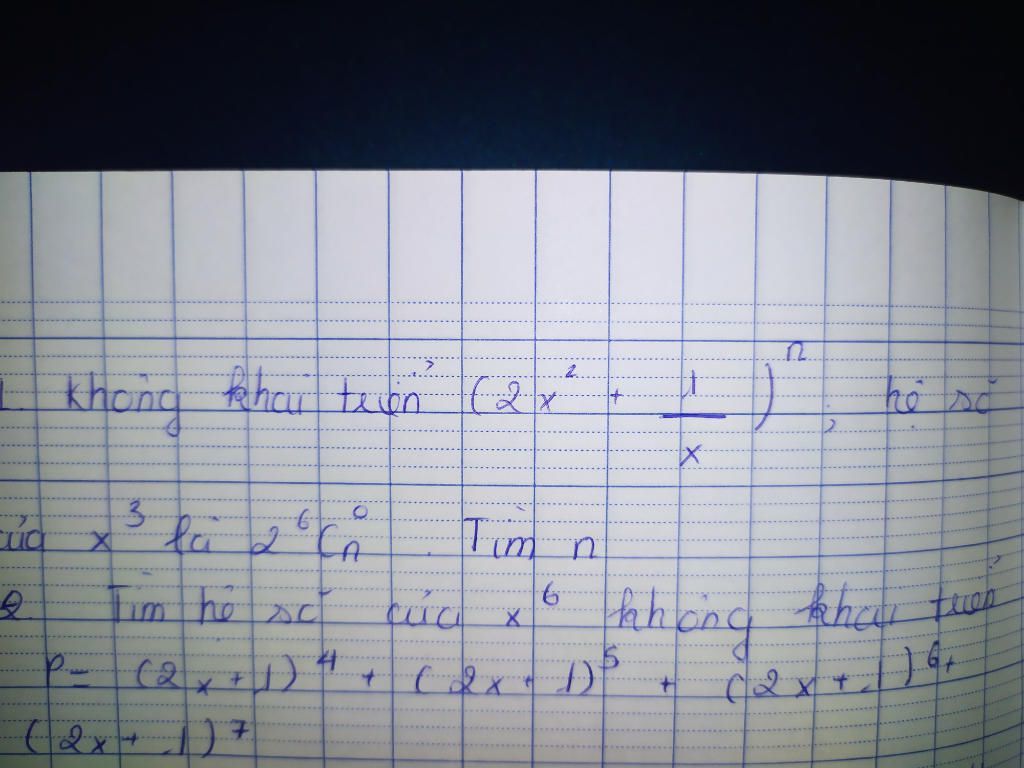 1. Không khai triển (2x² + 1/x)ⁿ ; hệ số
của x³ là 2⁶Cₙ⁰. Tìm n
2. Tìm hệ số của x⁶ không khai triển
P = (2x + 1)⁴ + (2x + 1)⁵ + (2x + 1)⁶ +
(2x + 1)⁷